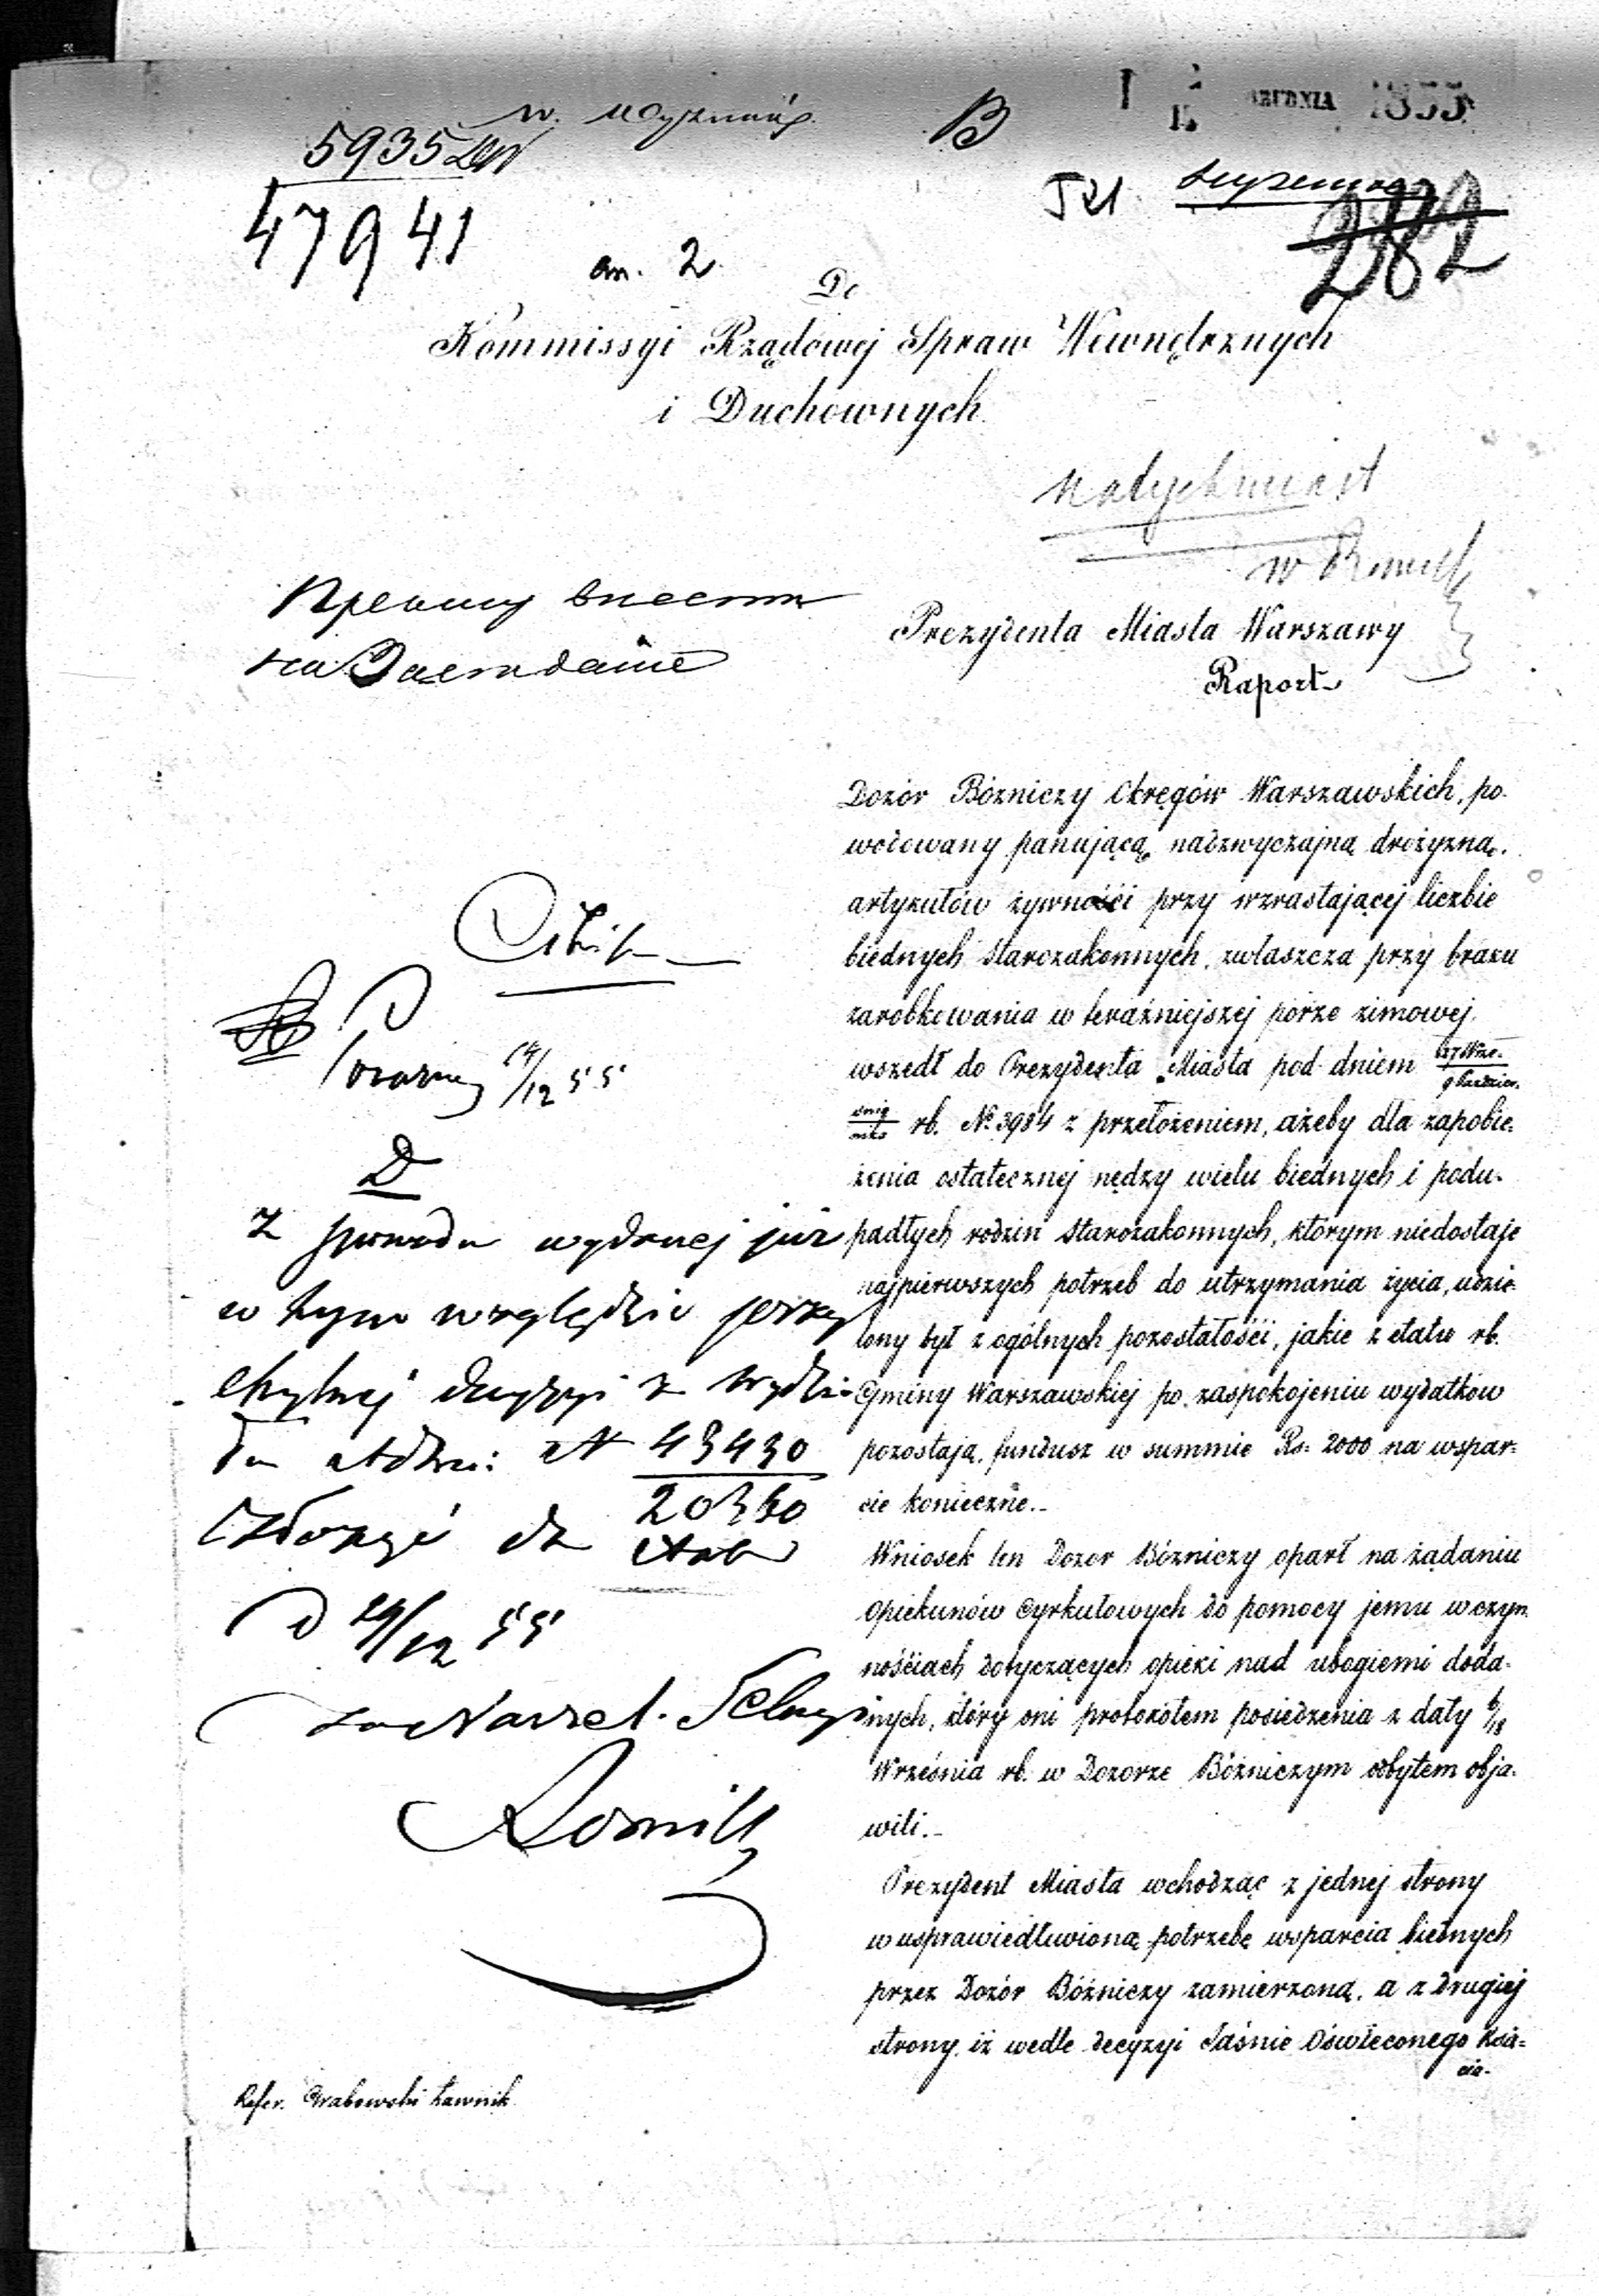 GRUDNIA 1855
B
5935
47941
an. 2.
282
Do
Kommissyi Rządowej Spraw Wewnętrznych
i Duchownych
Natychmiast
Prezydenta Miasta Warszawy
Raport
Dozór Bózniczy Okręgów Warszawskich, po-
wodowany panującą nadzwyczajną drożyzną
artykułów żywności przy wzrastającej liczbie
biednych Starozakonnych, zwłaszcza przy braku
zarobkowania w teraźniejszej porze zimowej
wszedł do Prezydenta Miasta pod dniem 27 Wrze-
9 Paździer-
śnia
nika rb. № 3984 z przełożeniem, ażeby dla zapobie-
żenia ostatecznej nędzy wielu biednych i podu-
padłych rodzin Starozakonnych, którym niedostaje
najpierwszych potrzeb do utrzymania życia, udzie-
lony był z ogólnych pozostałości, jakie z etatu rb.
Gminy Warszawskiej po zaspokojeniu wydatków
pozostają, fundusz w summie Rs: 2000 na wspar-
cie konieczne.
Wniosek ten Dozor Bózniczy oparł na żądaniu
Opiekunów Cyrkułowych do pomocy jemu w czyn-
nościach dotyczących opieki nad ubogiemi doda-
nych, który oni protokółem posiedzenia z daty 6/18
Września rb. w Dozorze Bóżniczym odbytem obja-
wili.
Prezydent Miasta wchodząc z jednej strony
w usprawiedliwioną potrzebę wsparcia biednych
przez Dozór Bóżniczy zamierzoną, a z drugiej
strony iż wedle decyzyi Jaśnie Oświeconego Księ-
cia-
14/12 55
D
Z powodu wydanej już
w tym względzie przy
chylnej decyzyi z Wydzia
łu Admi: N 43430
20350
złożyć do akt
D 29/12 55
Refer. Grabowski Ławnik